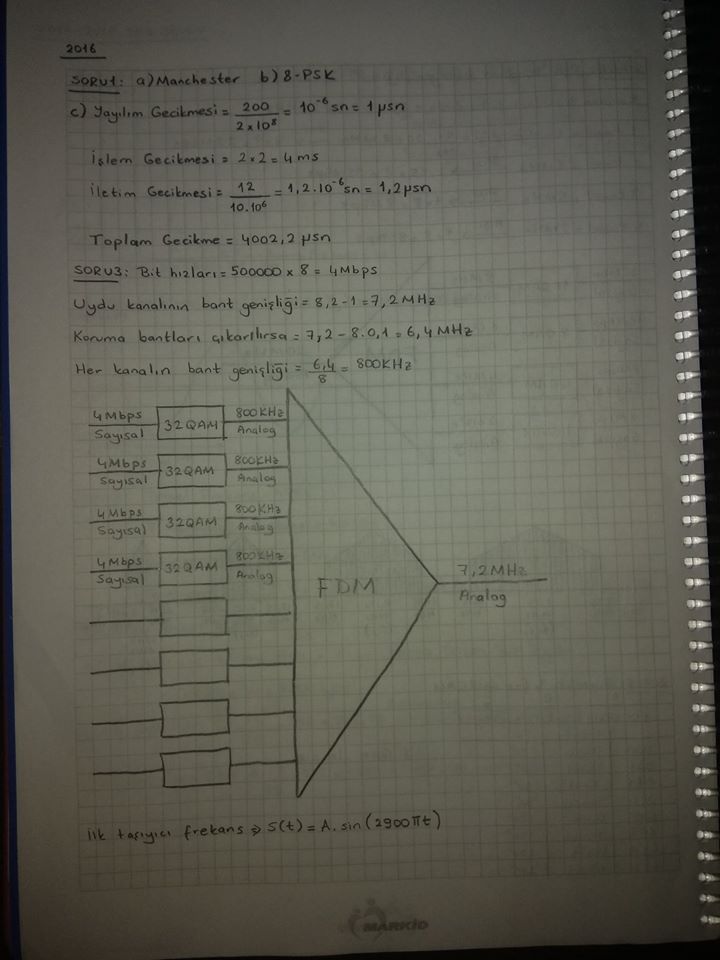 2016
SORU1: a) Manchester b) 8-PSK
c) Yayılım Gecikmesi = 200 / 2x10⁸ = 10⁻⁶ sn = 1 µsn
İşlem Gecikmesi = 2x2 = 4 ms
İletim Gecikmesi = 12 / 10.10⁶ = 1,2.10⁻⁶ sn = 1,2 µsn
Toplam Gecikme = 4002,2 µsn
SORU3: Bit hızları = 500000 x 8 = 4 Mbps
Uydu kanalının bant genişliği = 8,2 - 1 = 7,2 MHz
Koruma bantları çıkarılırsa = 7,2 - 8.0,1 = 6,4 MHz
Her kanalın bant genişliği = 6,4 / 8 = 800KHz
4Mbps Sayısal 32QAM 800KHz Analog
4Mbps Sayısal 32QAM 800KHz Analog
4Mbps Sayısal 32QAM 800KHz Analog
4Mbps Sayısal 32QAM 800KHz Analog
FDM
7,2MHz
Analog
İlk taşıyıcı frekans ⇒ S(t) = A. sin(2900πt)
MARKİD